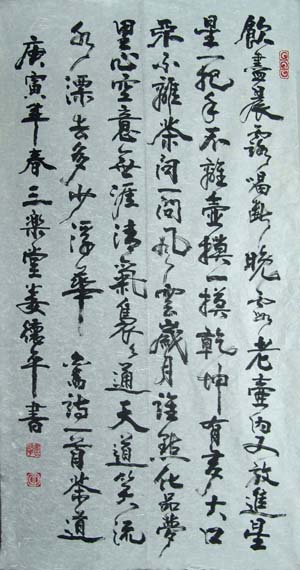 飲盡晨露喝乾晚霞老壺内又放進星
星一把手不離壺摸一摸乾坤有多大口
不離茶問一問風雲歲月誰點化品夢
里心空意無涯清氣裊裊通天道笑流
水漂去多少浮華 富詩一首茶道
庚寅年春三樂堂姜德年書